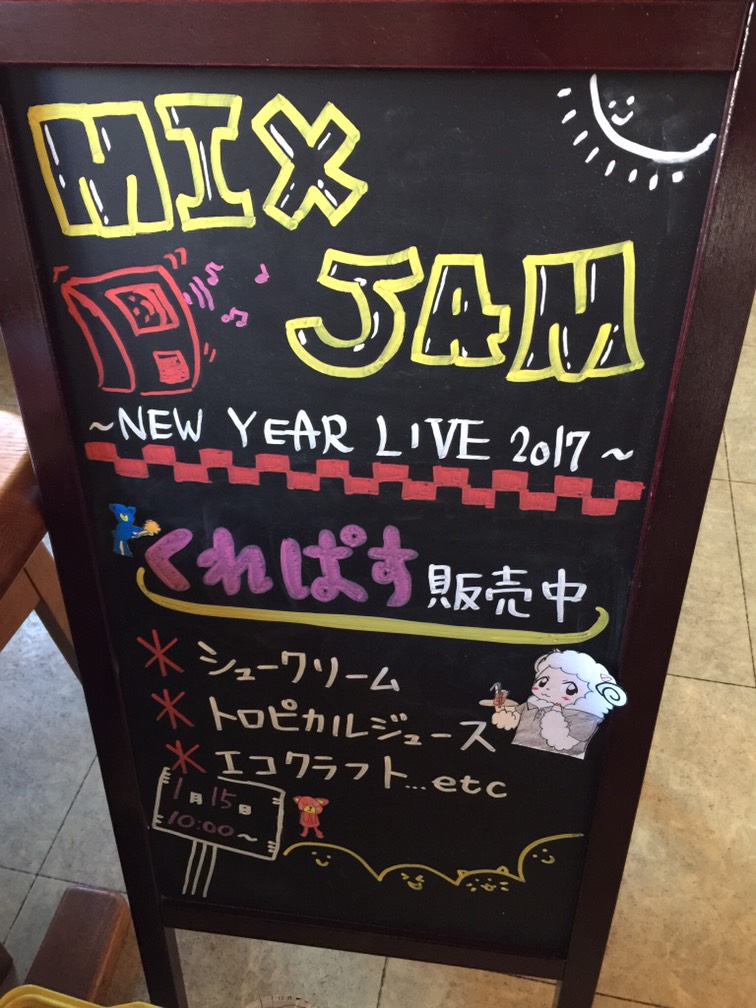 MIX
JAM
~NEW YEAR LIVE 2017~
くれぱす販売中
* シュークリーム
* トロピカルジュース
* エコクラフト...etc
1月15日
10:00~